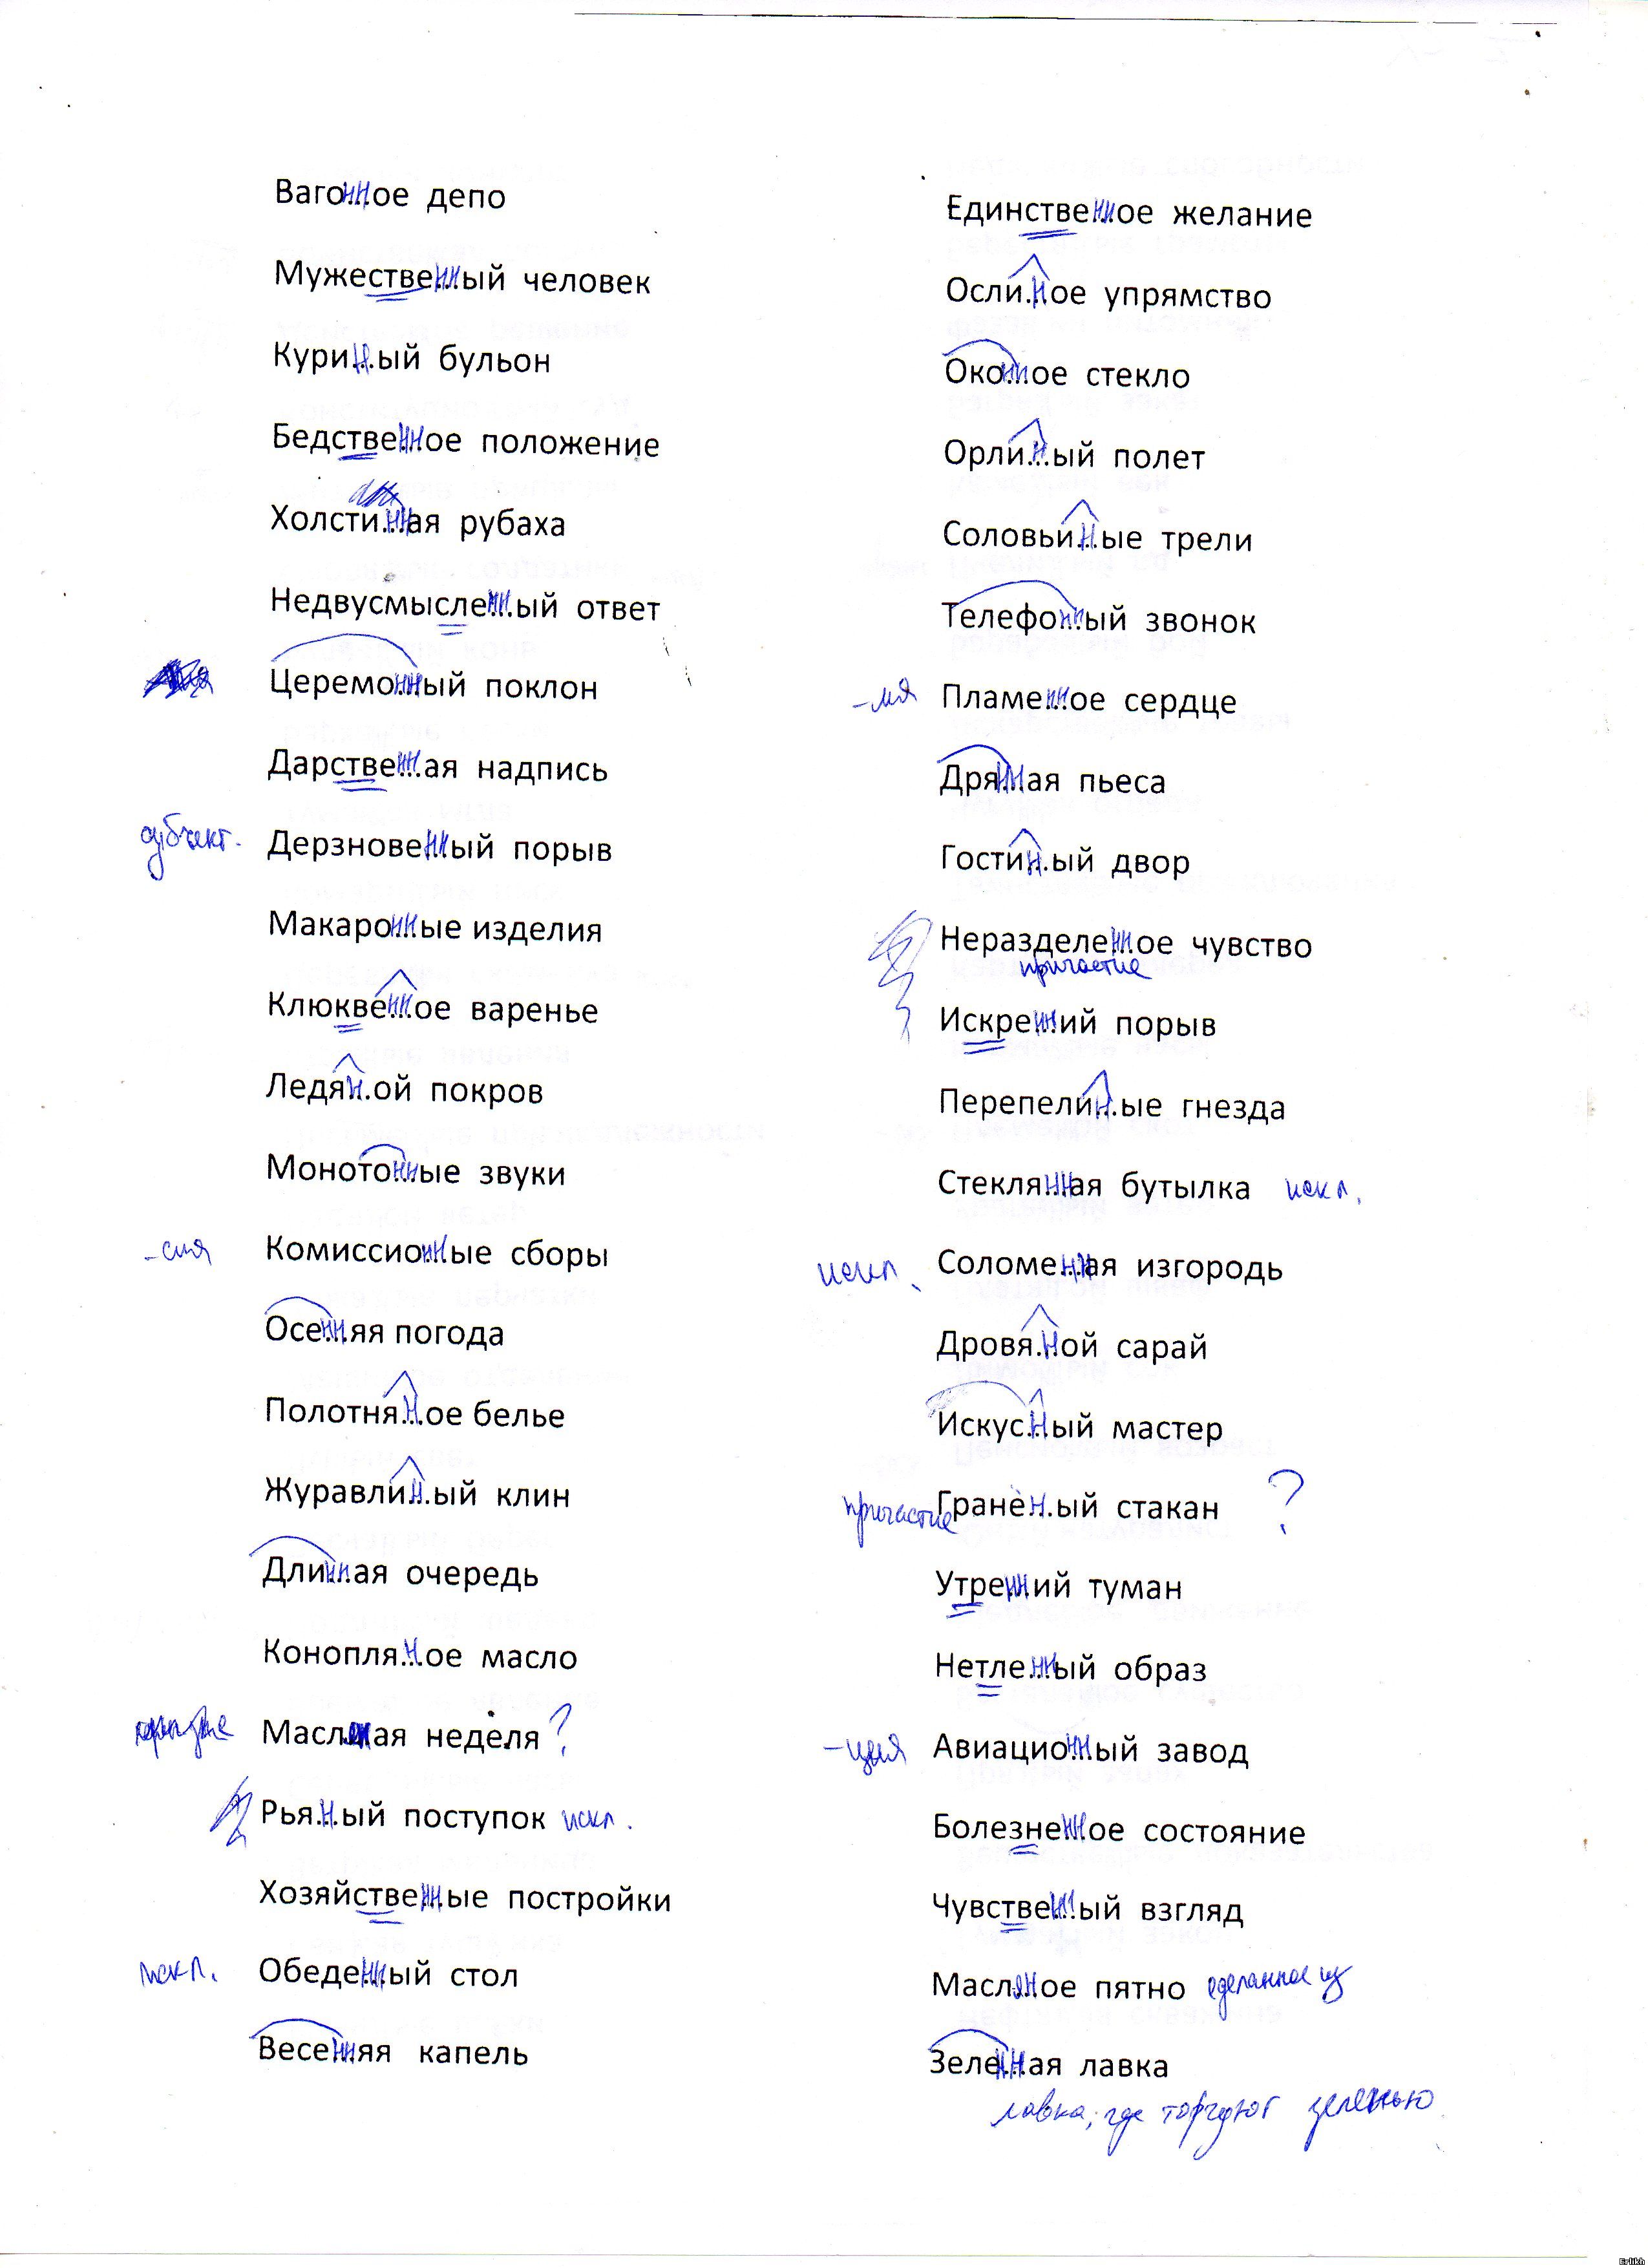 Вагонное депо
Мужественный человек
Куриный бульон
Бедственное положение
Холстинная рубаха
Недвусмысленный ответ
Церемонный поклон
Дарственная надпись
субъект. Дерзновенный порыв
Макаронные изделия
Клюквенное варенье
Ледяной покров
Монотонные звуки
-сия Комиссионные сборы
Осенняя погода
Полотняное белье
Журавлиный клин
Длинная очередь
Конопляное масло
неделя ?
Рьяный поступок искл.
Хозяйственные постройки
искл. Обеденный стол
Весенняя капель
Единственное желание
Ослиное упрямство
Оконное стекло
Орлиный полет
Соловьиные трели
Телефонный звонок
-мя Пламенное сердце
Дрянная пьеса
Гостиный двор
Неразделенное чувство
причастие
Искренний порыв
Перепелиные гнезда
Стеклянная бутылка искл.
искл. Соломенная изгородь
Дровяной сарай
Искусный мастер
причастие Гранёный стакан ?
Утренний туман
Нетленный образ
-ция Авиационный завод
Болезненное состояние
Чувственный взгляд
Масляное пятно сделанное из
Зеленная лавка
лавка, где торгуют зеленью
Erlikh